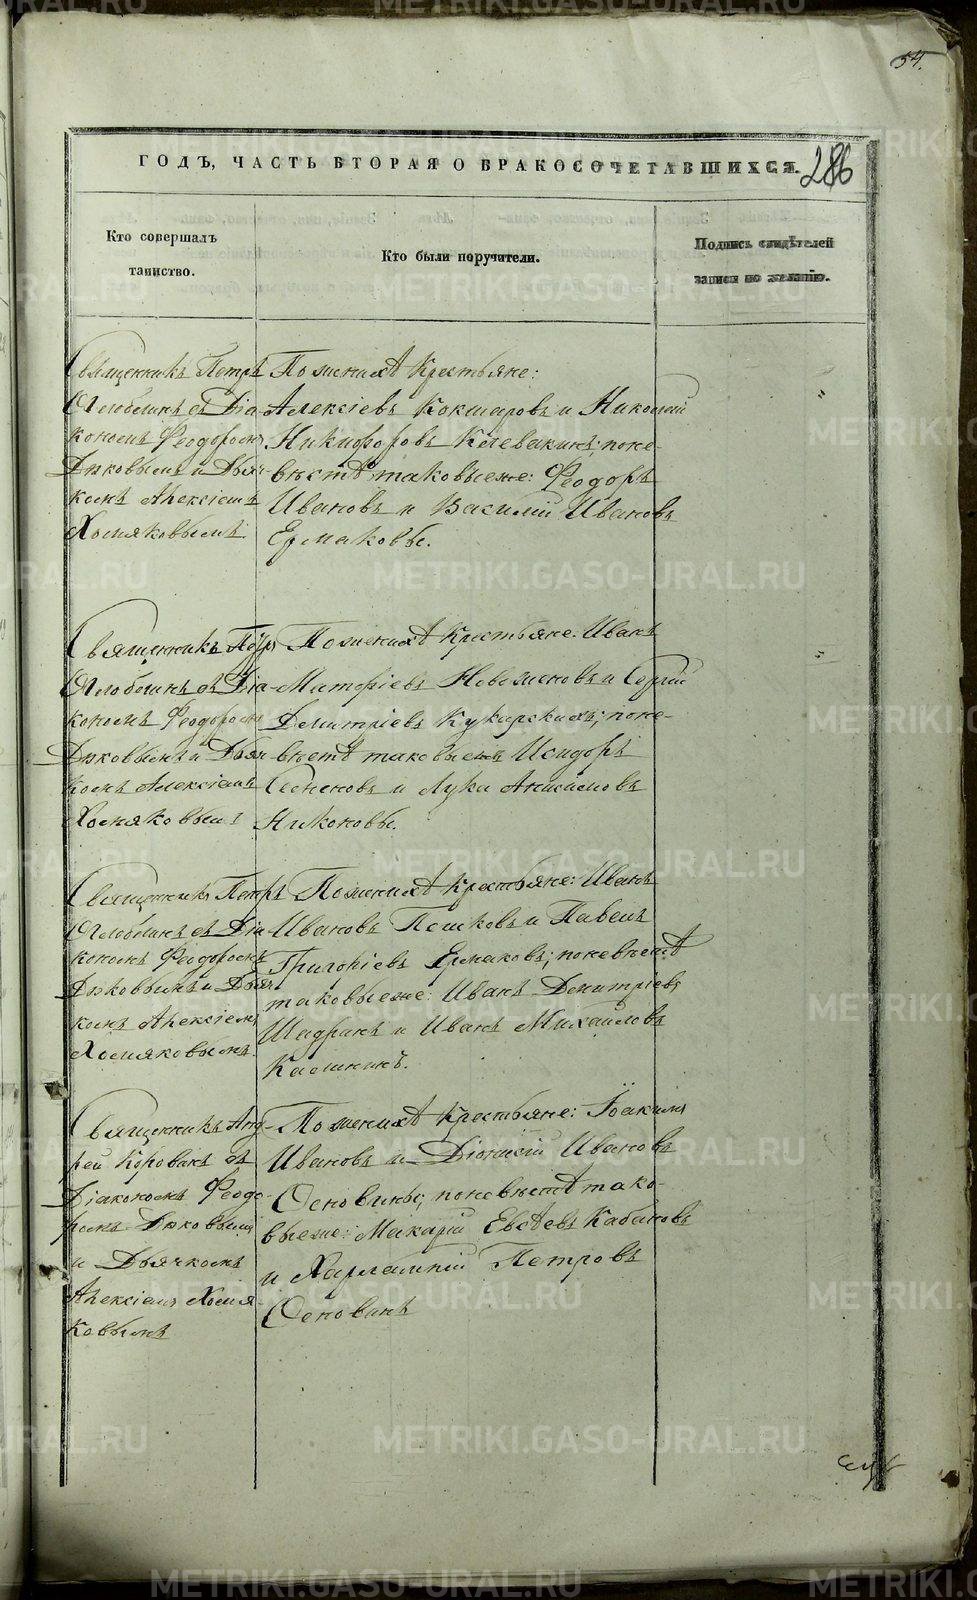 54.
ГОДЪ, ЧАСТЬ ВТОРАЯ О БРАКОСОЧЕТАВШИХСЯ.
286
Кто совершалъ
таинство.
Кто были поручители.
Подпись свидѣтелей
записи по желанію.
Священникъ Петръ
съ Діа-
кономъ Феодоромъ
Дьяч-
комъ Алексіемъ
Хомяковымъ.
По женихѣ Крестьяне:
Алексіевъ Кокшаровъ и Николай
Никифоровъ Колевакинъ; по не-
вѣстѣ таковыеже: Феодоръ
Ивановъ и Василій Ивановъ
Ермаковы.
Священникъ Петръ
съ Діа-
кономъ Феодоромъ
и Дьяч-
комъ Алексіемъ
Хомяковымъ
По женихѣ Крестьяне: Иванъ
Митофіевъ и Сергій
Димитріевъ Кукарскихъ; по не-
вѣстѣ таковыеже Исидоръ
и Луки
Никоновы.
Священникъ Петръ
съ Діа-
кономъ Феодоромъ
и Дьяч-
комъ Алексіемъ
Хомяковымъ
По женихѣ Крестьяне: Иванъ
Ивановъ Пешковъ и Павелъ
Григоріевъ Ермаковъ; по невѣстѣ
таковыеже: Иванъ Димитріевъ
Шадринъ и Иванъ Михайловъ
Калининъ.
Священникъ Анд-
рей Короваевъ съ
Діакономъ Феодо-
ромъ
и Дьячкомъ
Алексіемъ Хомя-
ковымъ
По женихѣ Крестьяне: Іоакимъ
Ивановъ и Діонисій Ивановъ
Основины; по невѣстѣ тако-
выеже: Макарій Евсѣевъ Кабановъ
и Харлампій Петровъ
Основинъ
METRIKI.GASO-URAL.RU